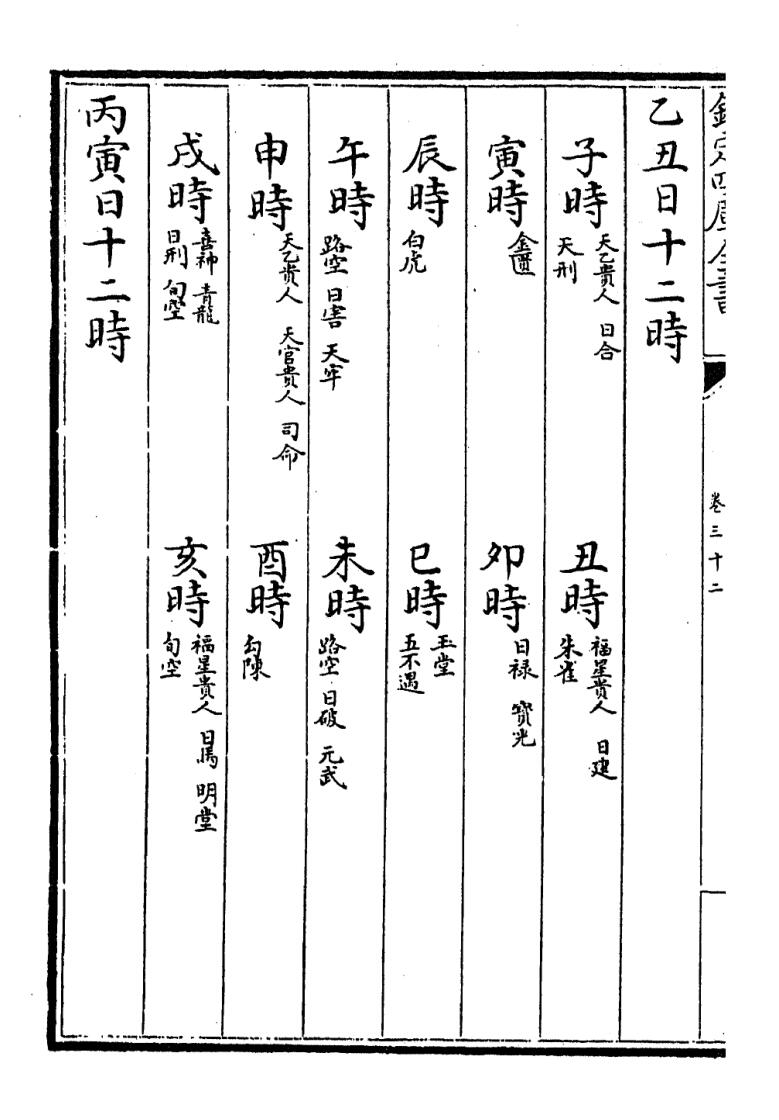 欽定四庫全書
卷三十二
乙丑日十二時
子時 天乙貴人 日合 天刑
丑時 福星貴人 日建 朱雀
寅時 金匱
卯時 日禄 寳光
辰時 白虎
巳時 玉堂 五不遇
午時 路空 日害 天牢
未時 路空 日破 元武
申時 天乙貴人 天官貴人 司命
酉時 勾陳
戌時 喜神 青龍 日刑 旬空
亥時 福星貴人 日馬 明堂 旬空
丙寅日十二時